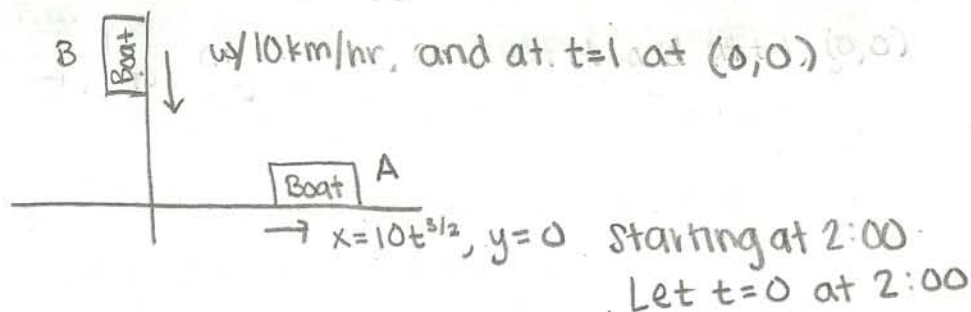 B Boat w/10km/hr, and at t=1 at (0,0)
Boat A
→ x=10t^{3/2}, y=0 Starting at 2:00.
Let t=0 at 2:00